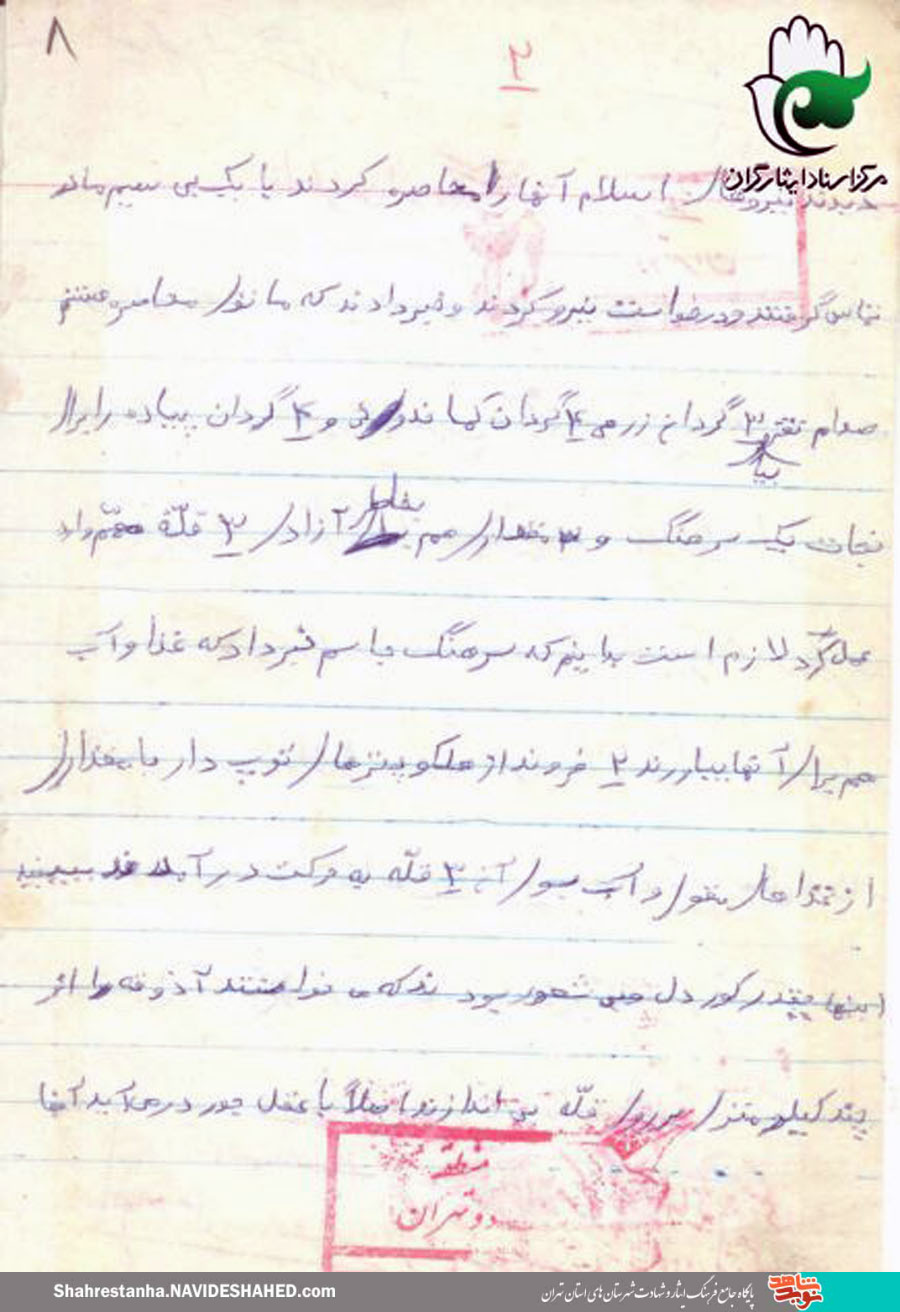 ۸
۲
مرکز اسناد ایثارگران
دیدند نیروهای اسلام آنها را محاصره کردند با یک بی سیم مادر
تماس گرفتند و درخواست نیرو کردند و خبر دادند که ما توی محاصره هستیم
صدام ۳ گردان زرهی ۴ گردان کماندوئی و ۴ گردان پیاده را برای
نجات یک سرهنگ و ۳ هم بخاطر آزادی ۳ قلّه مهّم وارد
عمل کرد لازم است بدانیم که سرهنگ جاسم خبر داد که غذا و آب
هم برای آنها بیاورند ۲ فروند از هلکوپترهای توپ دار با مقداری
از غذاهای مقوی و آب بسوی آن ۳ قلّه به حرکت در آمدند ببینید
اینها چقدر کور دل و بی شعور بودند که می خواستند آذوقه را از
چند کیلومتری بر روی قلّه بی اندازند اصلاً با عقل جور در می آید آنها
منطقه
دو تهران
Shahrestanha.NAVIDESHAHED.com
پایگاه جامع فرهنگ ایثار و شهادت شهرستان های استان تهران
نوید شاهد